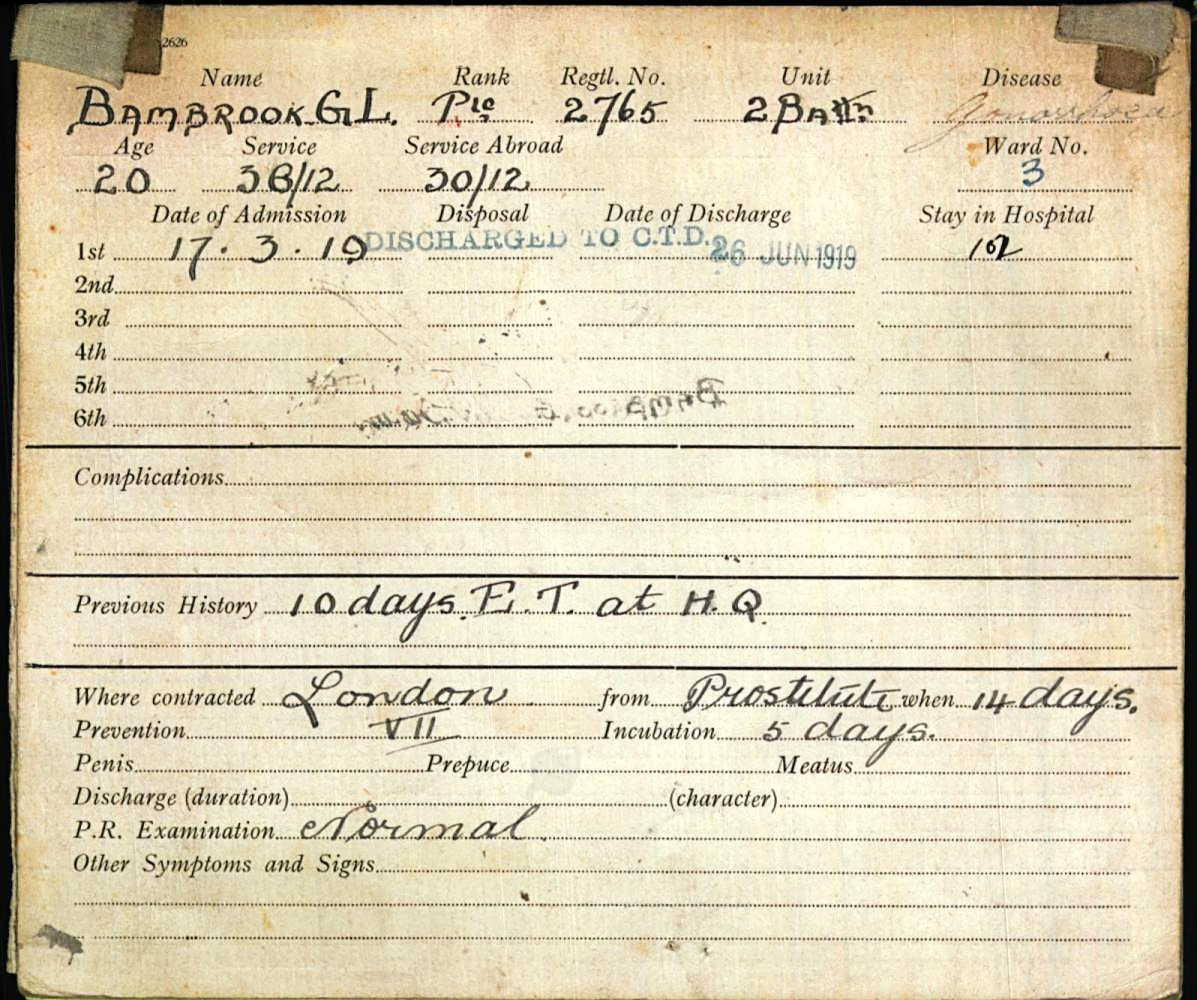 2626
Name Rank Regtl. No. Unit Disease
BAMBROOK G L. Pte 2765 2 BATTN Gonorrhoea
Age Service Service Abroad Ward No.
20 36/12 30/12 3
Date of Admission Disposal Date of Discharge Stay in Hospital
1st 17.3.19 DISCHARGED TO C.T.D. 26 JUN 1919 102
2nd
3rd
4th
5th
6th
Complications
Previous History 10 days E. T. at H.Q.
Where contracted London from Prostitute when 14 days.
Prevention VII Incubation 5 days.
Penis Prepuce Meatus
Discharge (duration) (character)
P.R. Examination Normal.
Other Symptoms and Signs